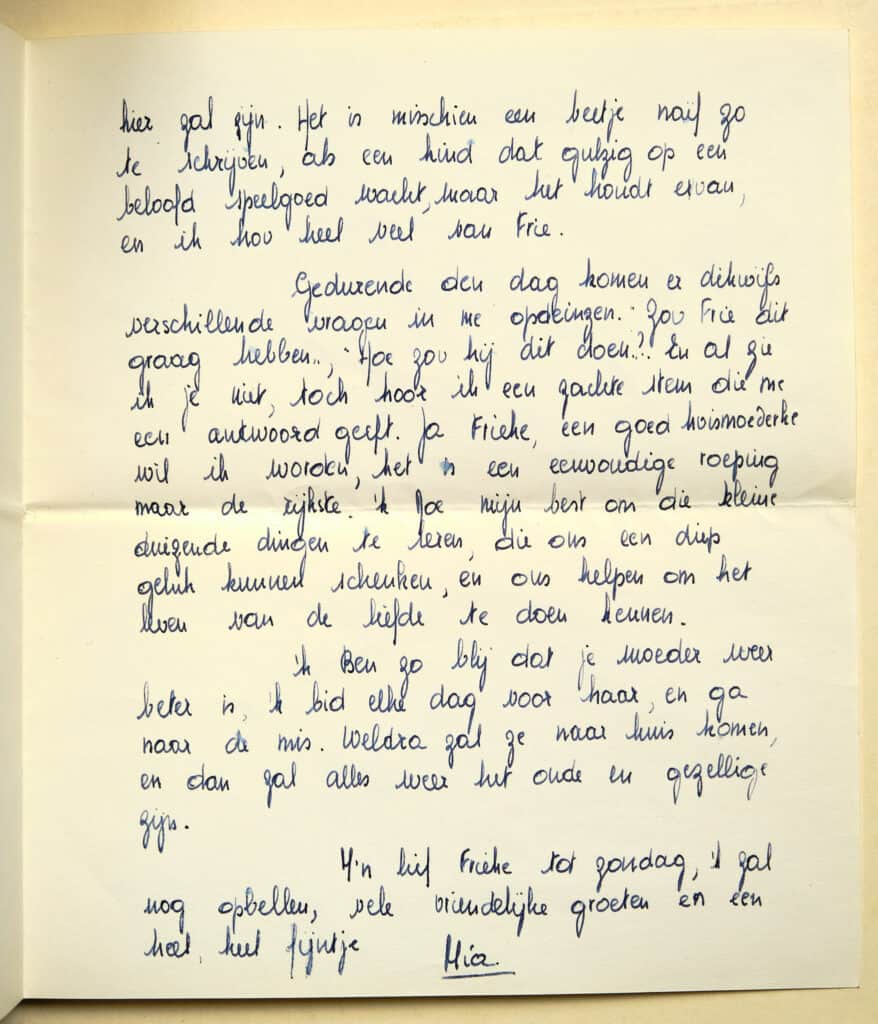 hier zal zijn. Het is misschien een beetje naïf zo
te schrijven, als een kind dat gulzig op een
beloofd speelgoed wacht, maar het houdt ervan,
en ik hou heel veel van Frie.
Gedurende den dag komen er dikwijls
verschillende vragen in me opdringen. Zou Frie dit
graag hebben.., Hoe zou hij dit doen..?. En al zie
ik je niet, toch hoor ik een zachte stem die me
een antwoord geeft. Ja Frieke, een goed huismoederke
wil ik worden, het is een eenvoudige roeping
maar de rijkste. 'k Doe mijn best om die kleine
duizende dingen te leren, die ons een diep
geluk kunnen schenken, en ons helpen om het
leven van de liefde te doen kennen.
'k Ben zo blij dat je moeder weer
beter is, 'k bid elke dag voor haar, en ga
naar de mis. Weldra zal ze naar huis komen,
en dan zal alles weer het oude en gezellige
zijn.
M'n lief Frieke tot zondag, 'k zal
nog opbellen, vele vriendelijke groeten en een
heel, heel fijntje Mia.